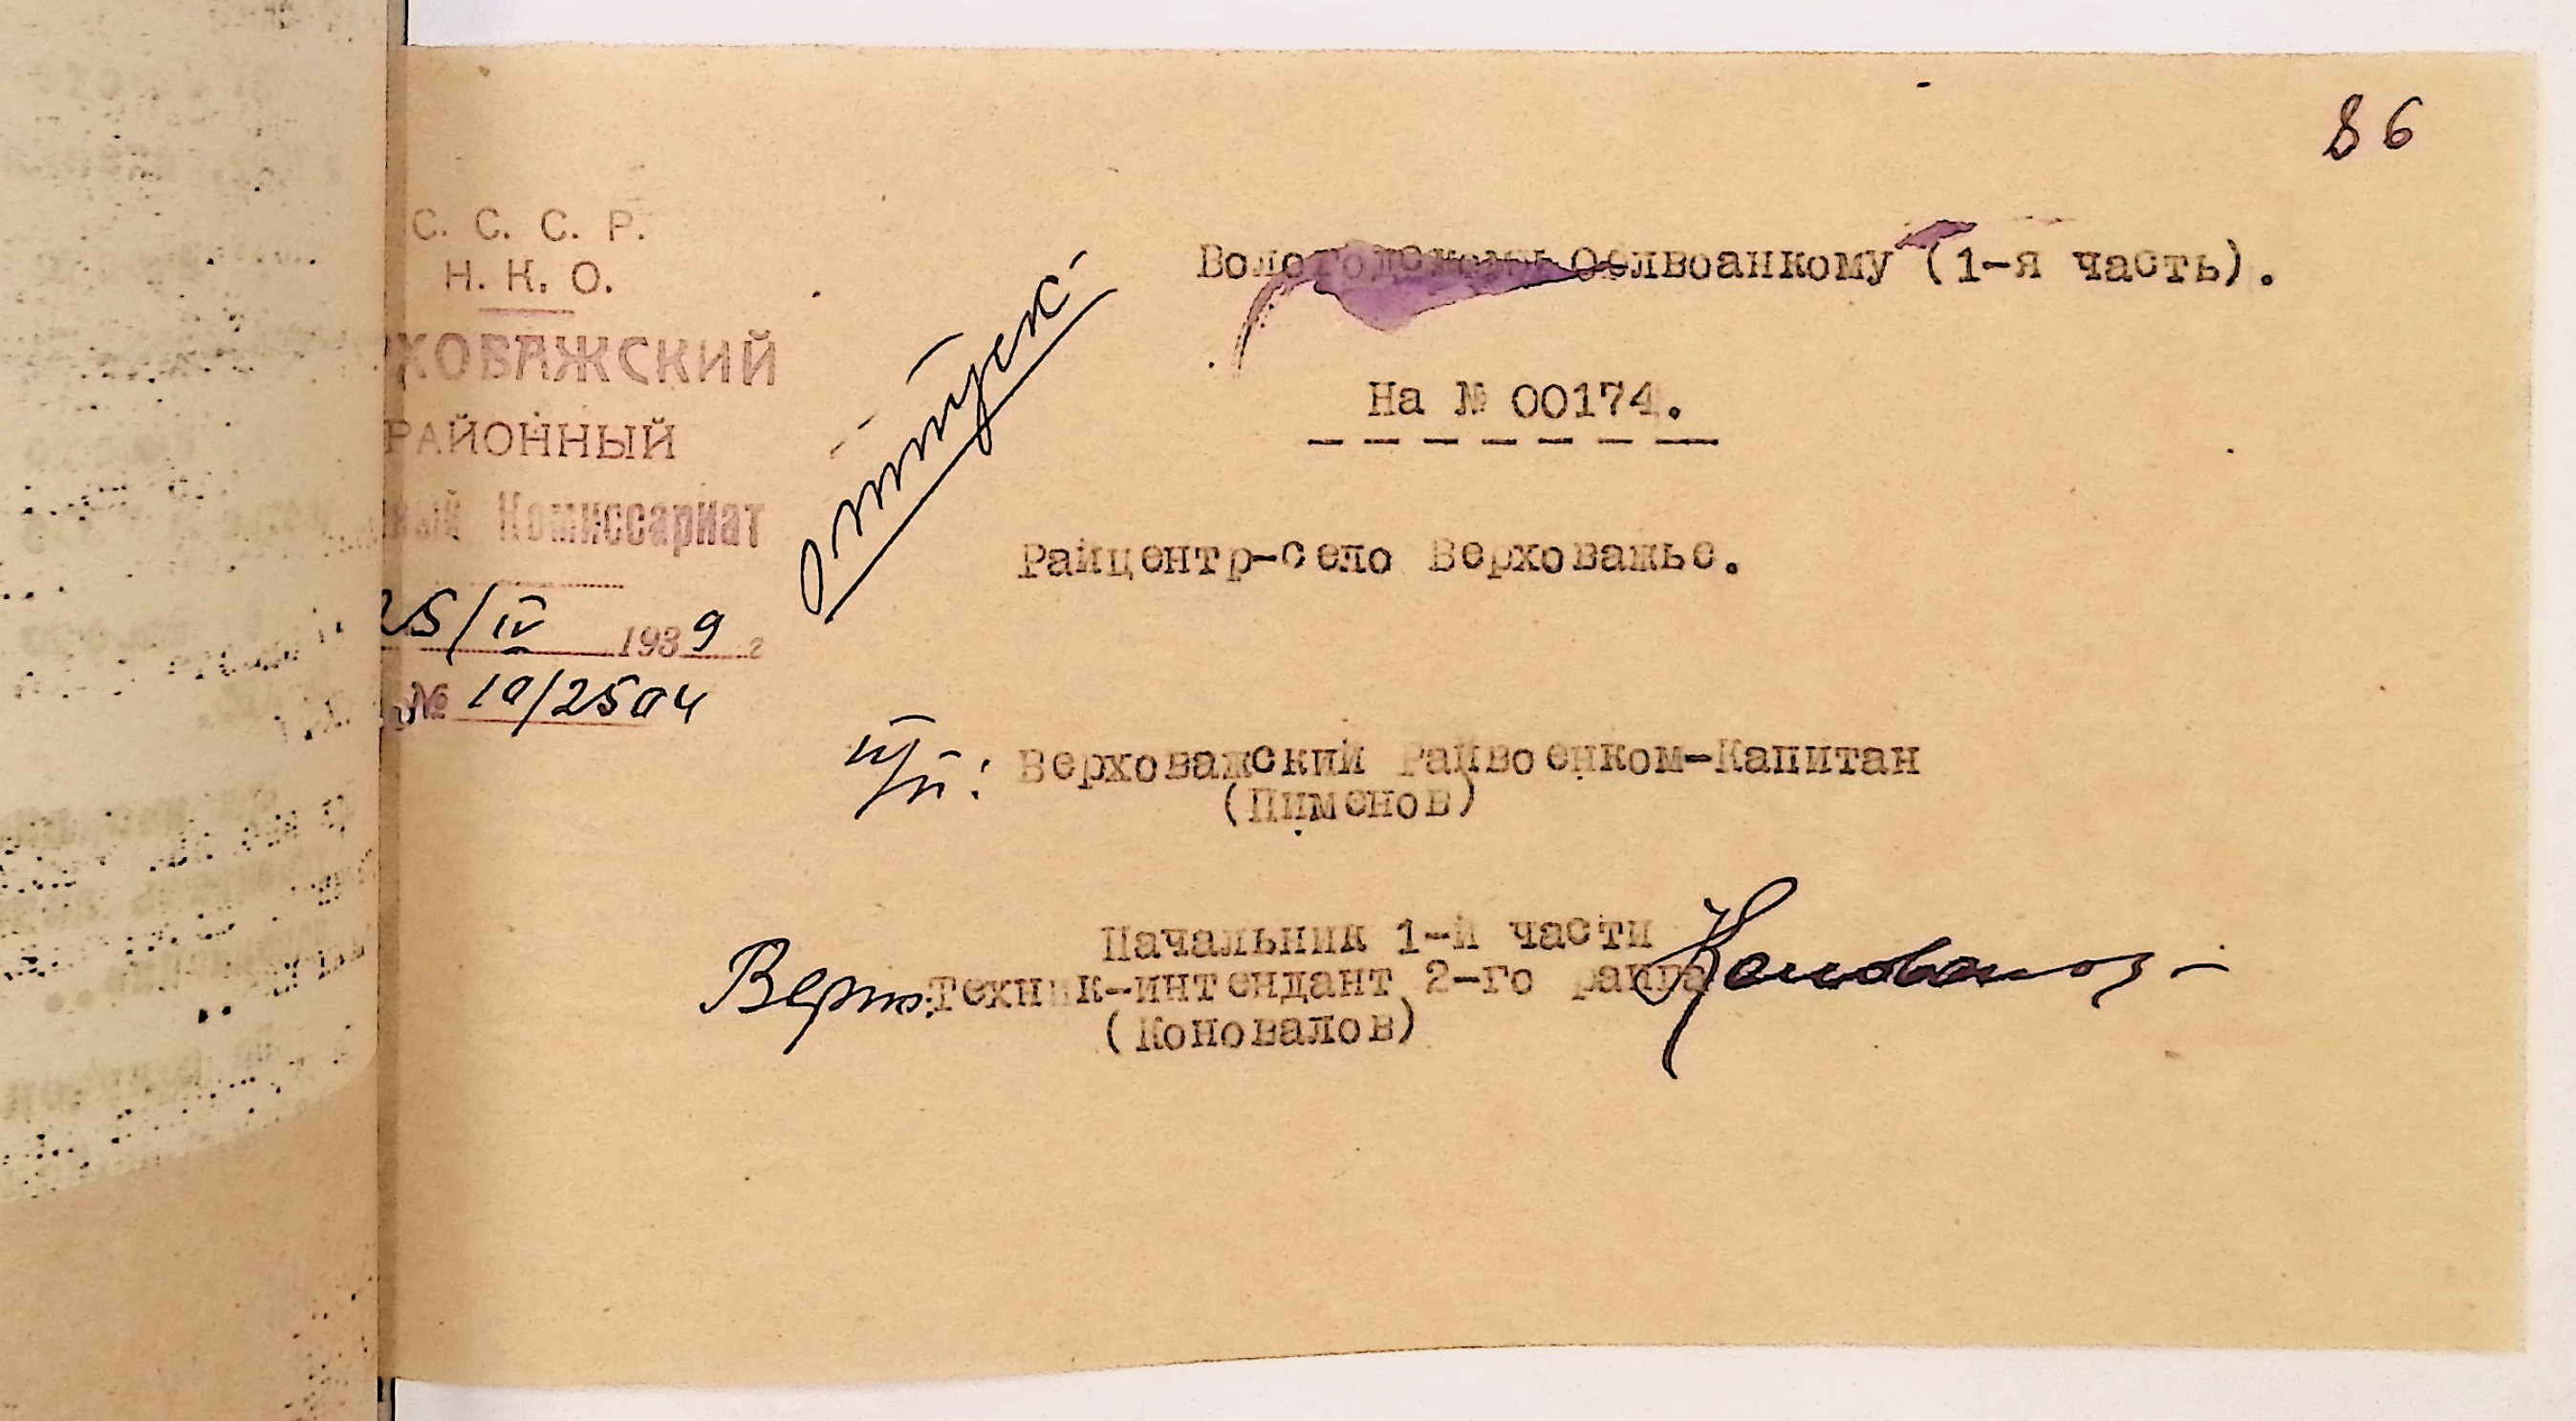 86
С. С. С. Р.
Н. К. О.
ХОВАЖСКИЙ
РАЙОННЫЙ
ный Комиссариат
25/IV 1939 г
№ 10/2504
Отпуск
Вологодскому Облвоанкому (1-я часть).
На № 00174.
Райцентр-село Верховажье.
п/п: Верховажский Райвоенком-Капитан
(Пименов)
Начальник 1-й части
Верно: Техник-интендант 2-го ранга Коновалов
(Коновалов)